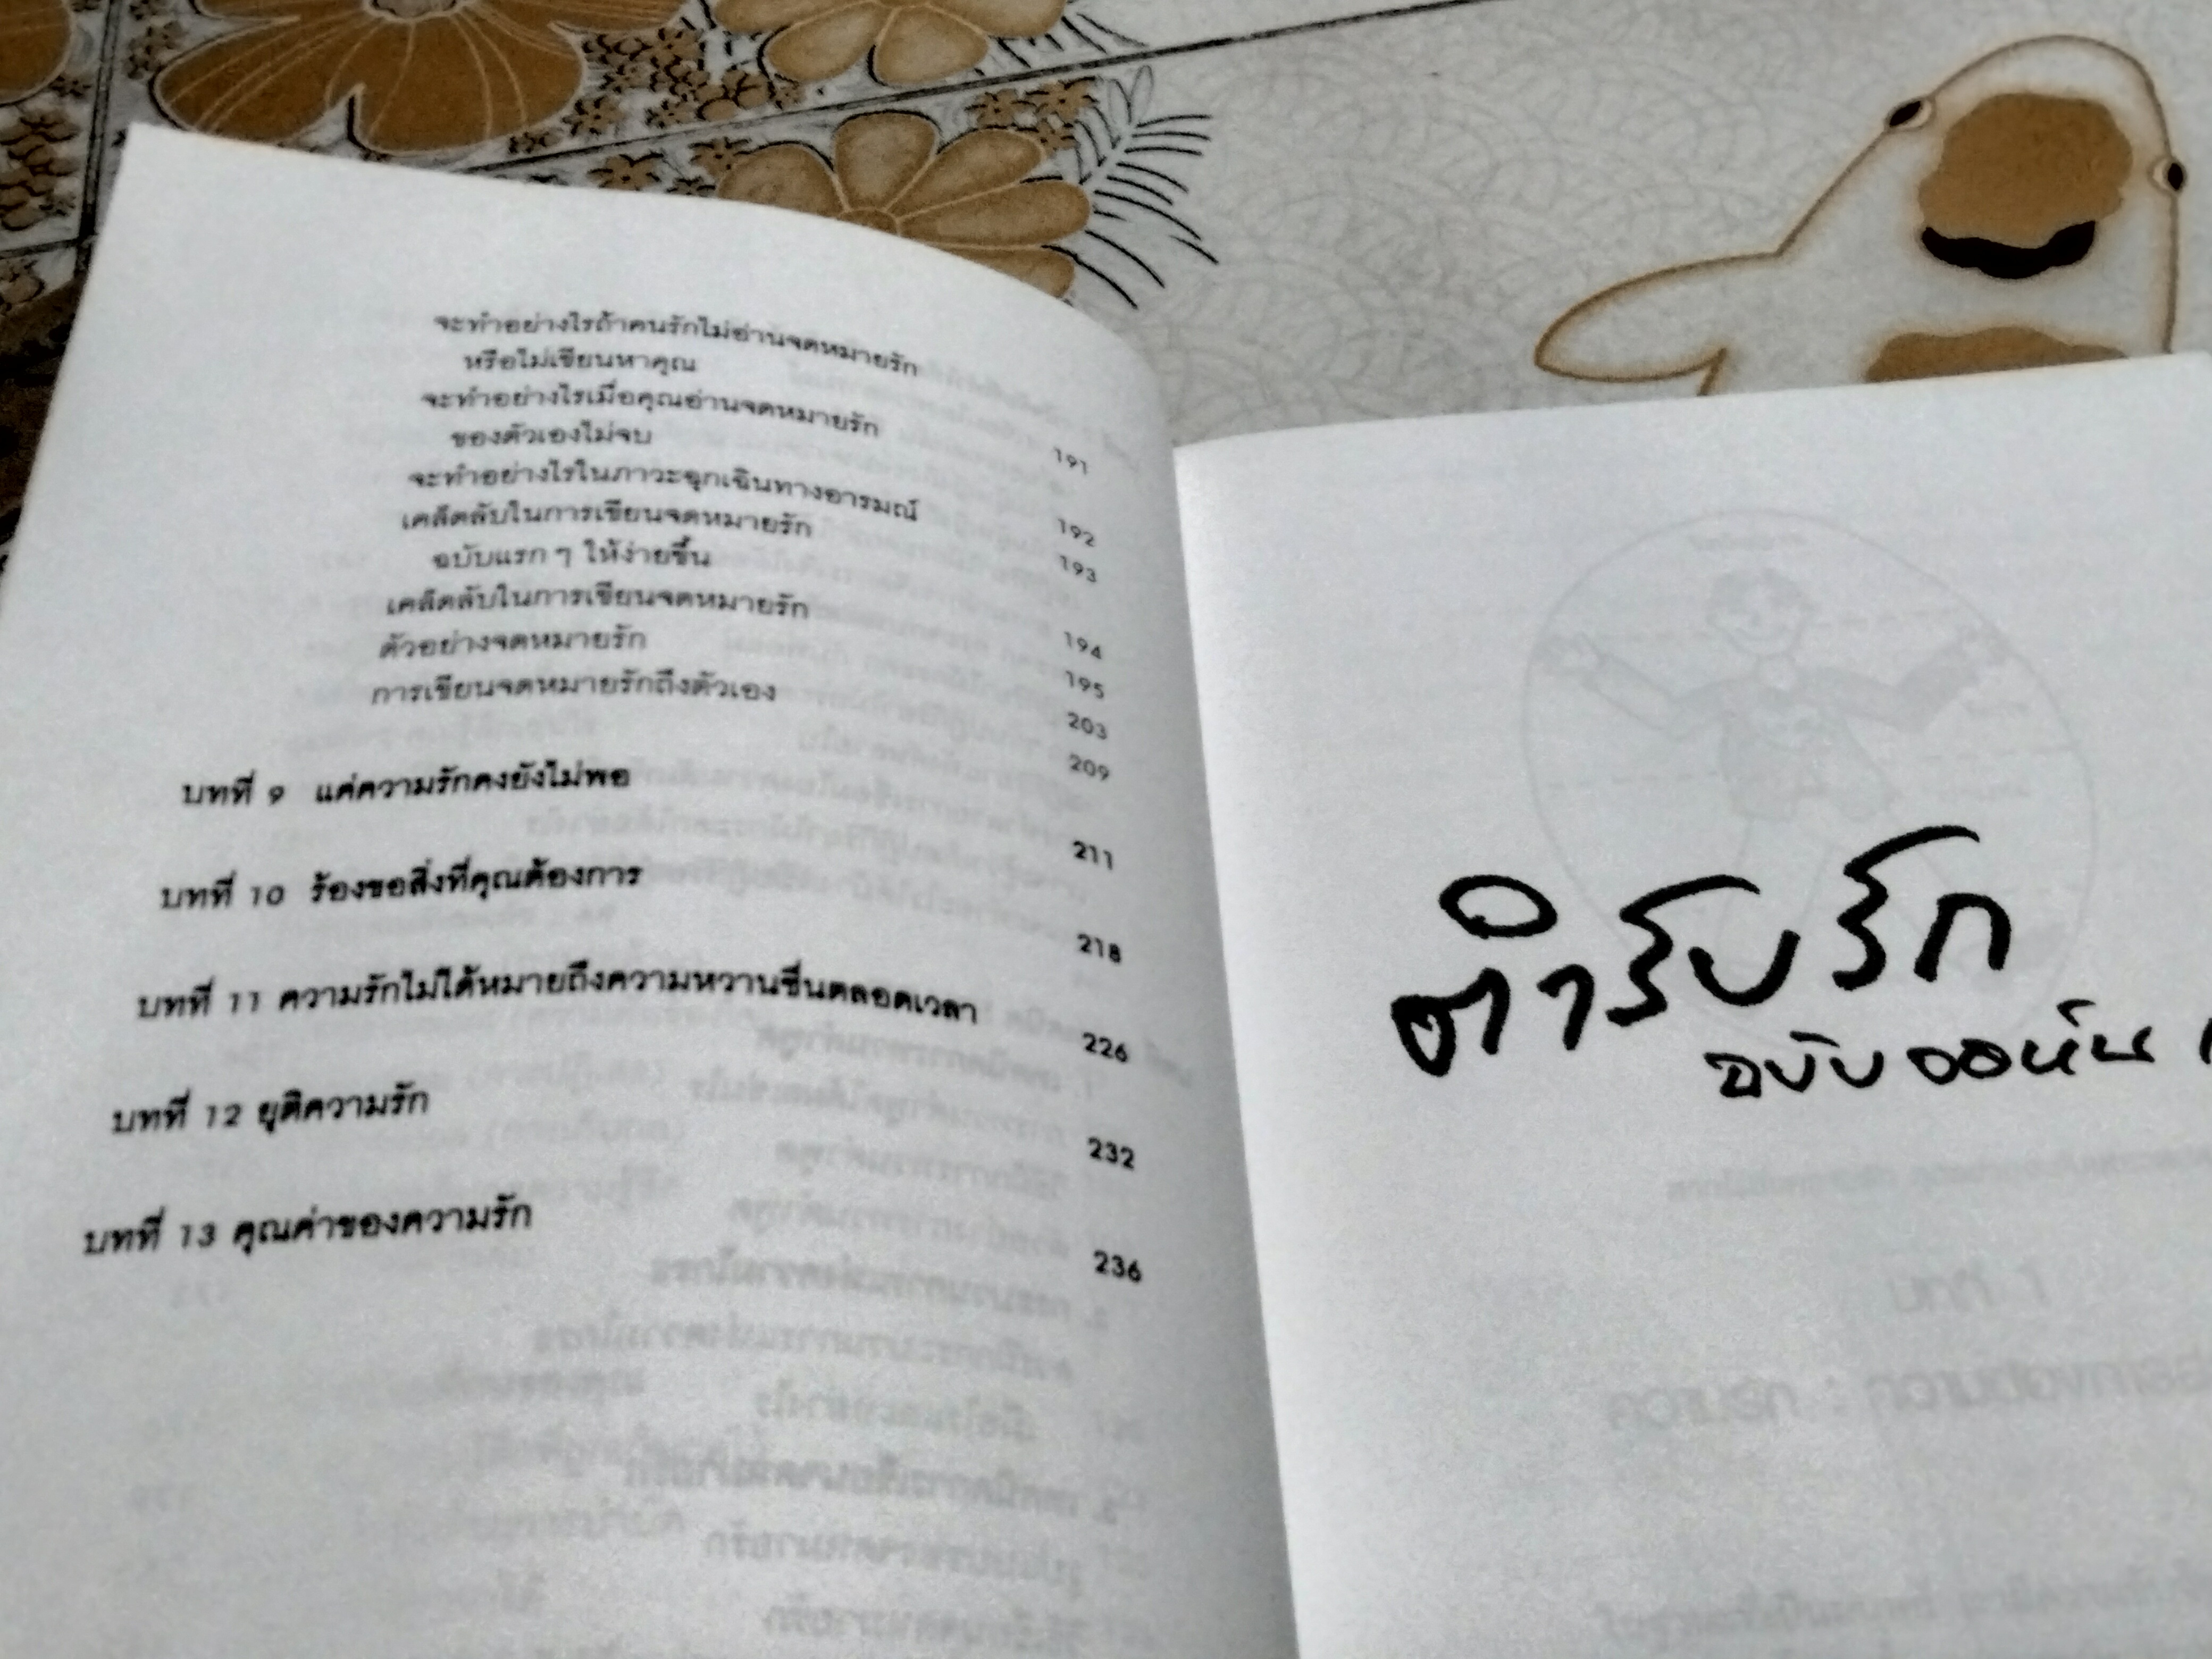 จะทำอย่างไรถ้าคนรักไม่อ่านจดหมายรัก
หรือไม่เขียนหาคุณ 191
จะทำอย่างไรเมื่อคุณอ่านจดหมายรัก
ของตัวเองไม่จบ 192
จะทำอย่างไรในภาวะฉุกเฉินทางอารมณ์ 193
เคล็ดลับในการเขียนจดหมายรัก
ฉบับแรก ๆ ให้ง่ายขึ้น 194
เคล็ดลับในการเขียนจดหมายรัก 195
ตัวอย่างจดหมายรัก 203
การเขียนจดหมายรักถึงตัวเอง 209
บทที่ 9 แค่ความรักคงยังไม่พอ 211
บทที่ 10 ร้องขอสิ่งที่คุณต้องการ 218
บทที่ 11 ความรักไม่ได้หมายถึงความหวานชื่นตลอดเวลา 226
บทที่ 12 ยุติความรัก 232
บทที่ 13 คุณค่าของความรัก 236
ตำรับรัก
ฉบับจอห์น